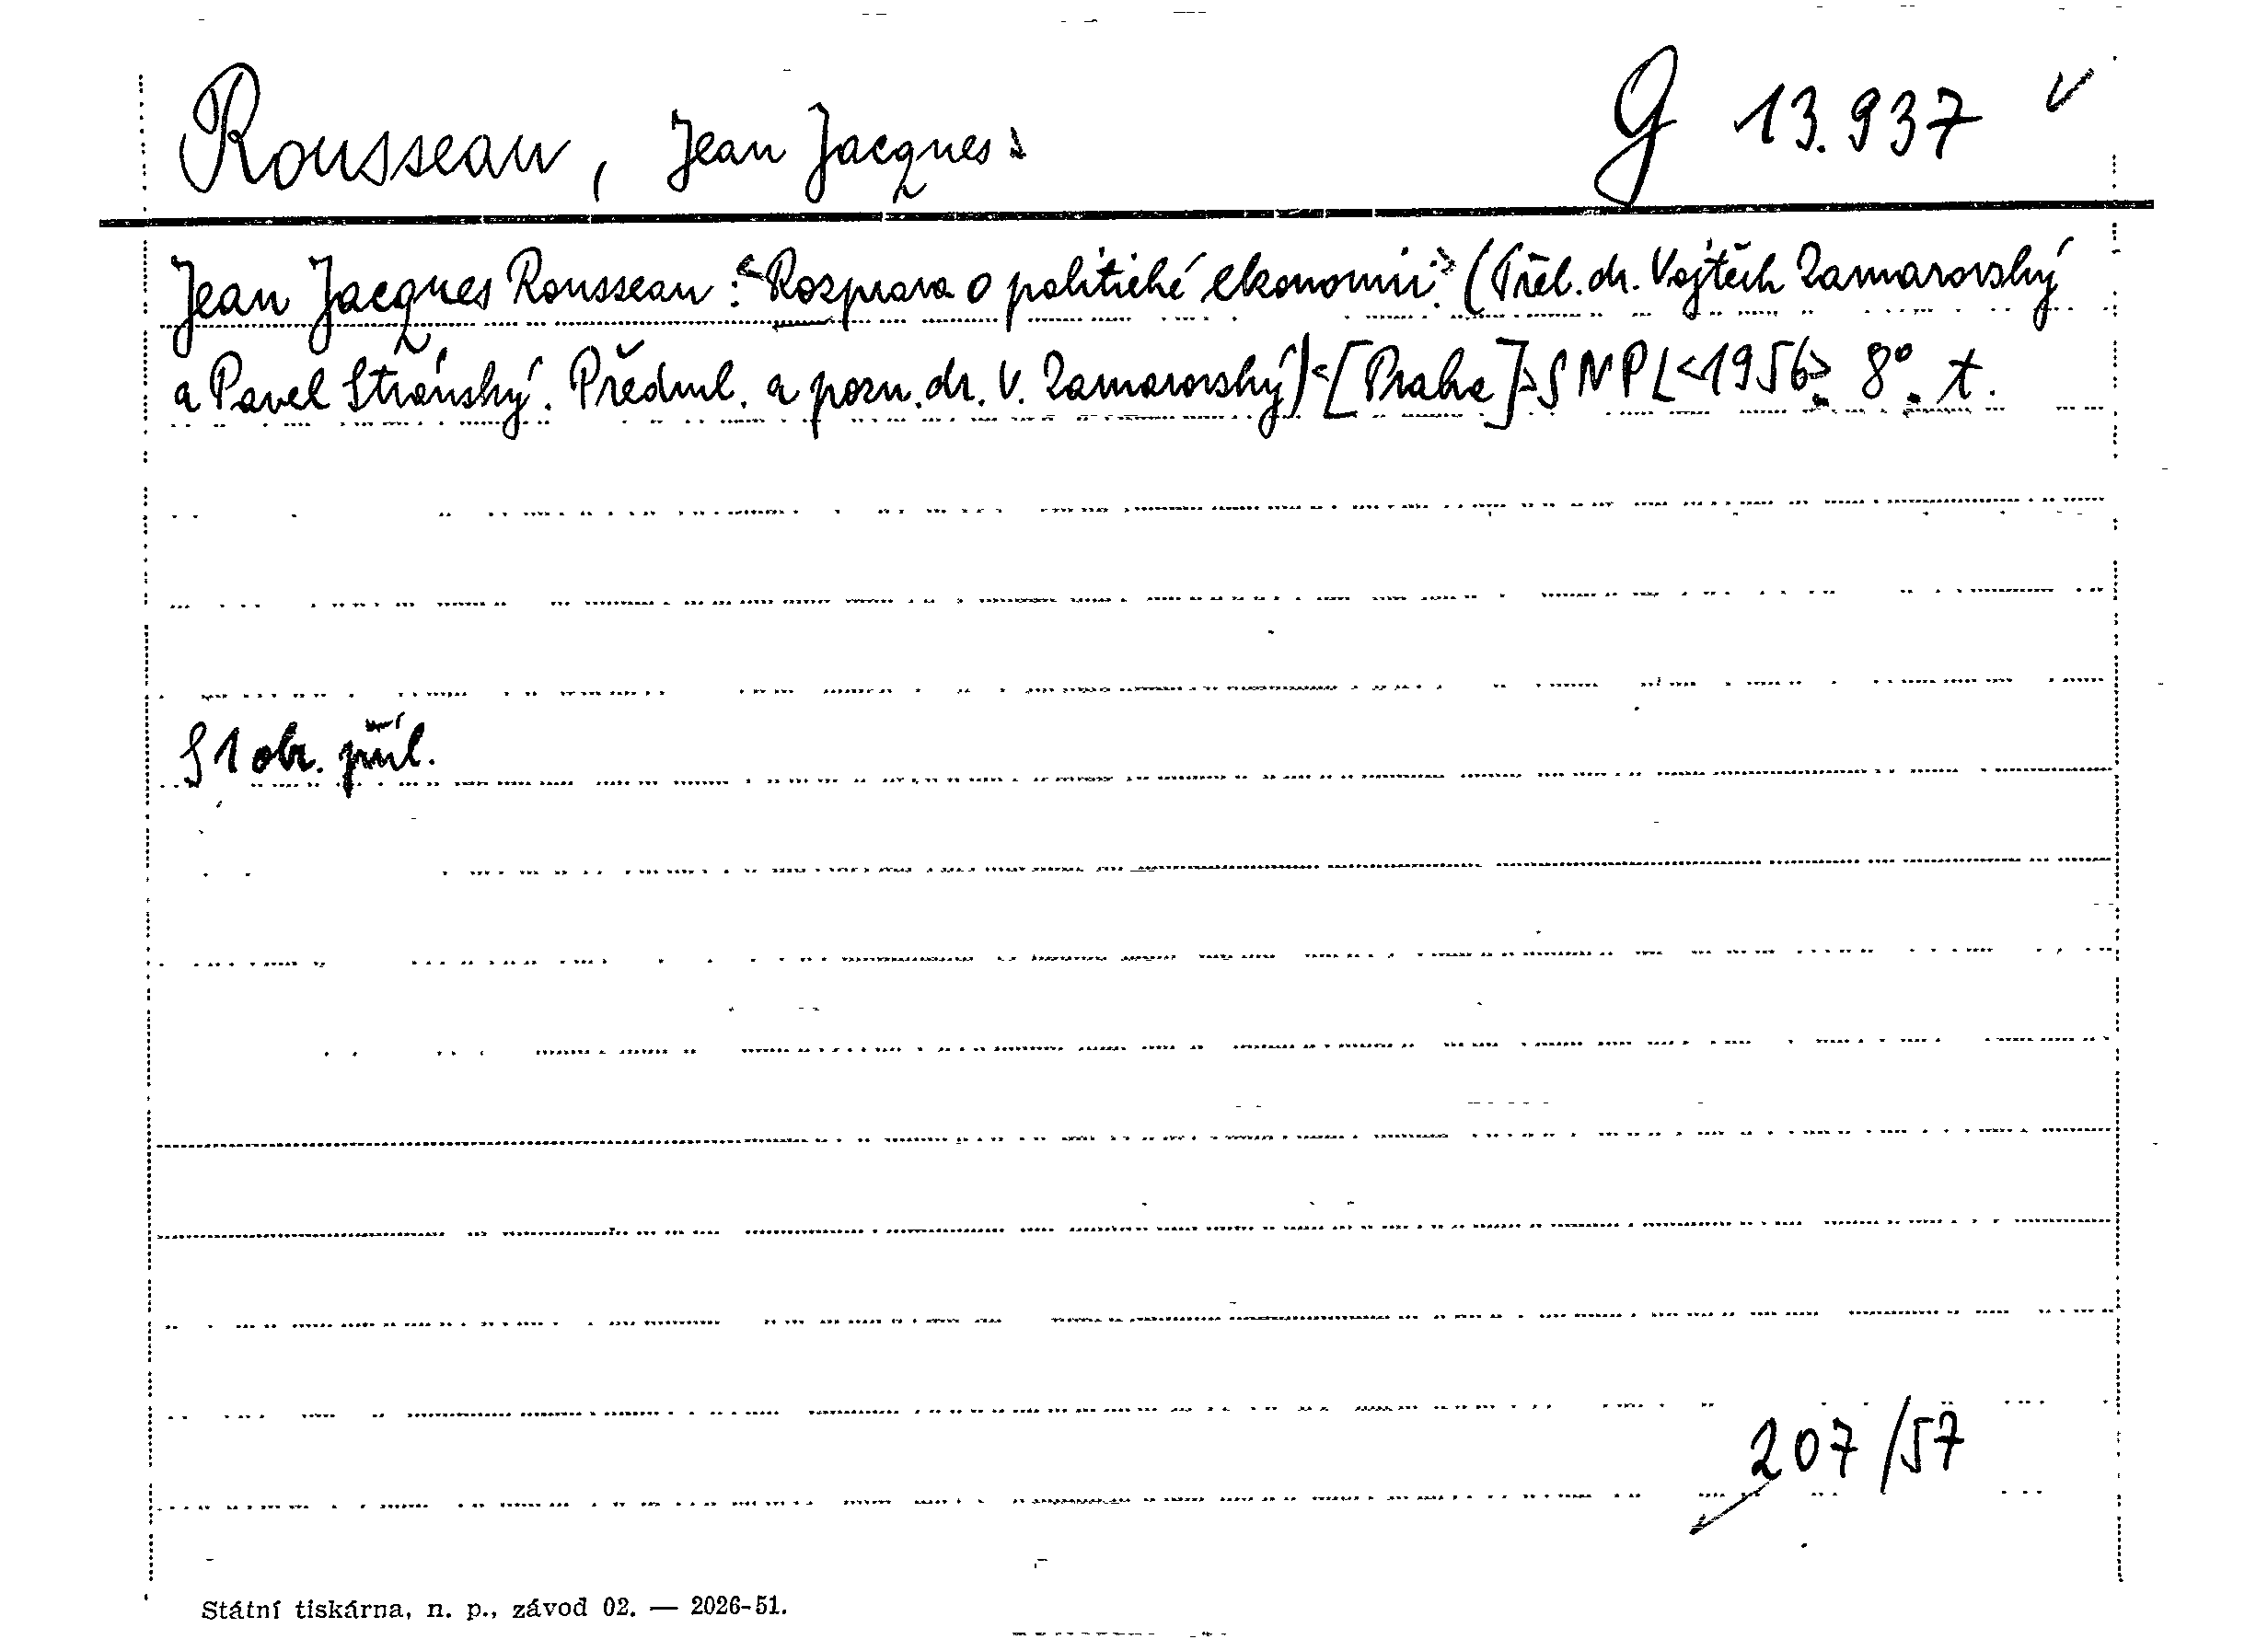 Rousseau, Jean Jacques: G 13.937
Jean Jacques Rousseau: <Rozprava o politické ekonomii.> (Přel. dr. Vojtěch Zamarovský
a Pavel Stránský. Předml. a pozn. dr. V. Zamarovský) <[Praha]> SNPL <1956>. 8°. t.
S 1 obr. příl.
207/57
Státní tiskárna, n. p., závod 02. — 2026-51.